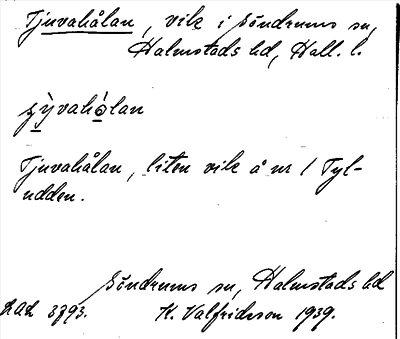 Tjuvahålan, vik i Söndrums sn,
Halmstads hd, Hall. l.
Tjuvahålan, liten vik å nr 1 Tyl-
udden.
Söndrums sn, Halmstads hd
3793. K. Valfridsson 1939.